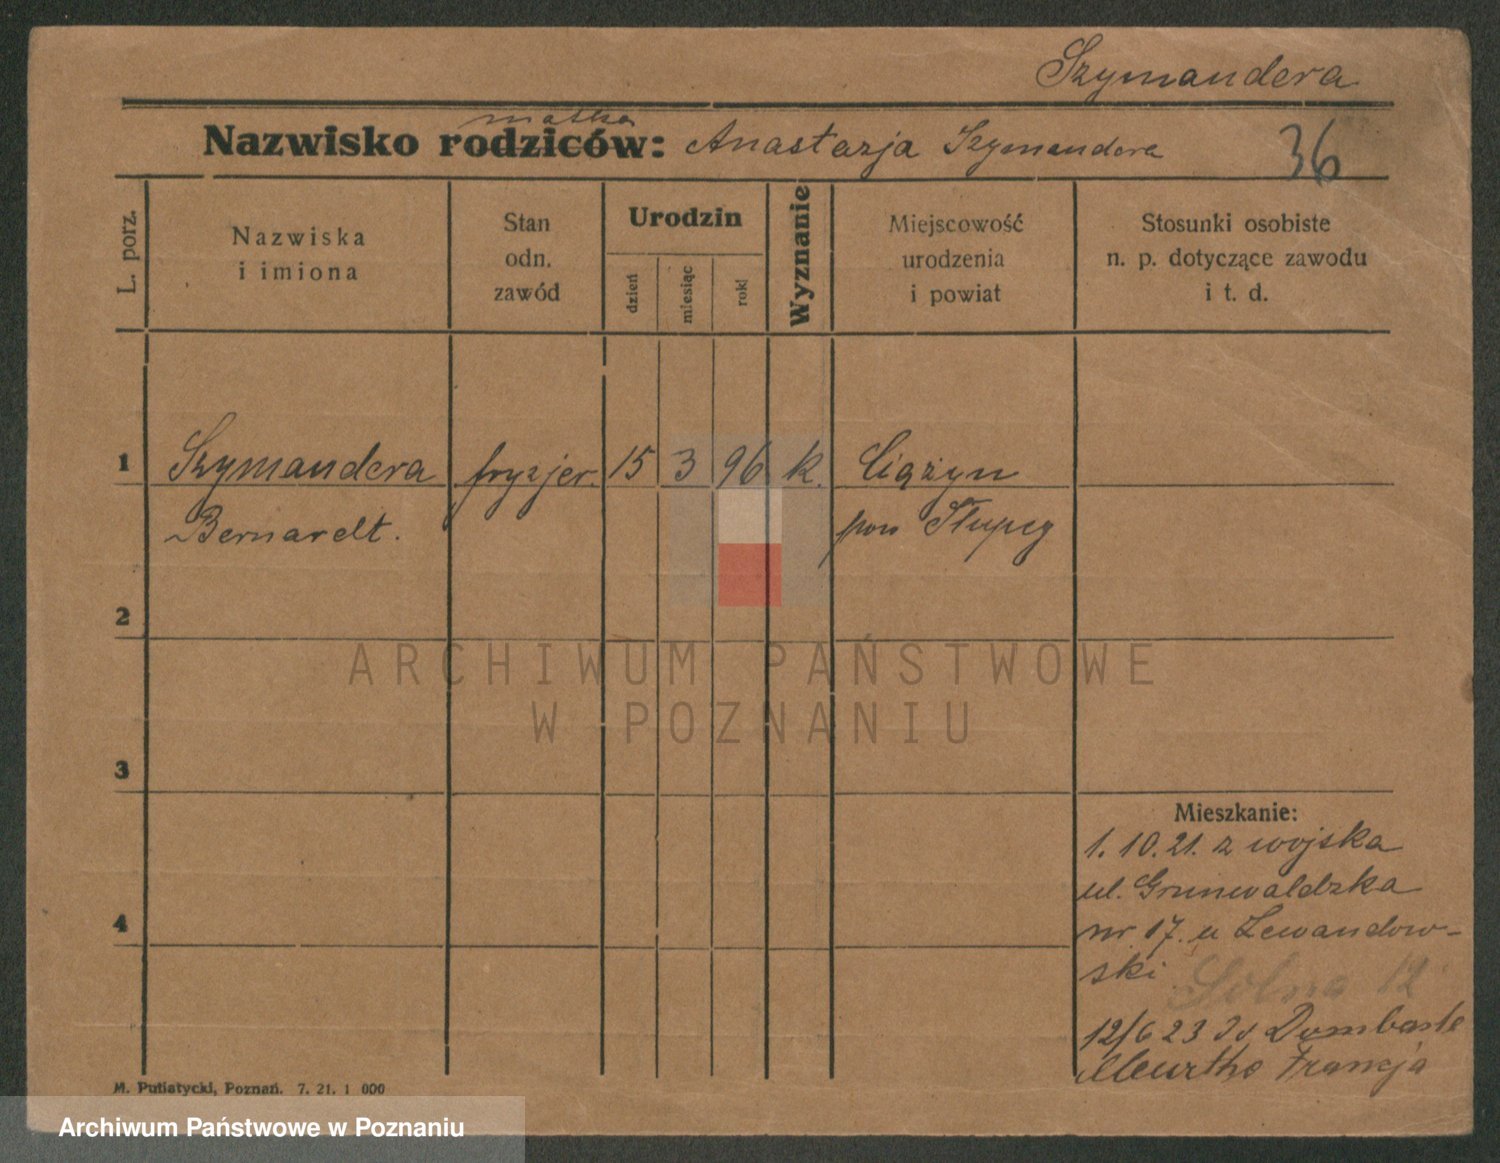 Szymandera
matka
Nazwisko rodziców: Anastazja Szymandera
36
L. porz.
Nazwiska
i imiona
Stan
odn.
zawód
Urodzin
dzień
miesiąc
rok!
Wyznanie
Miejscowość
urodzenia
i powiat
Stosunki osobiste
n. p. dotyczące zawodu
i t. d.
1 Szymandera fryzjer. 15 3 96 k. Ciążyn
Bernardt. pow Słupcy
2
ARCHIWUM PAŃSTWOWE
W POZNANIU
3
Mieszkanie:
1. 10. 21. z wojska
ul. Grunwaldzka
4
nr. 17. u Lewandow-
ski
Solna 12
12/6 23 Dombasle
Meurthe Francja
M. Putiatycki, Poznań. 7. 21. 1 000
Archiwum Państwowe w Poznaniu